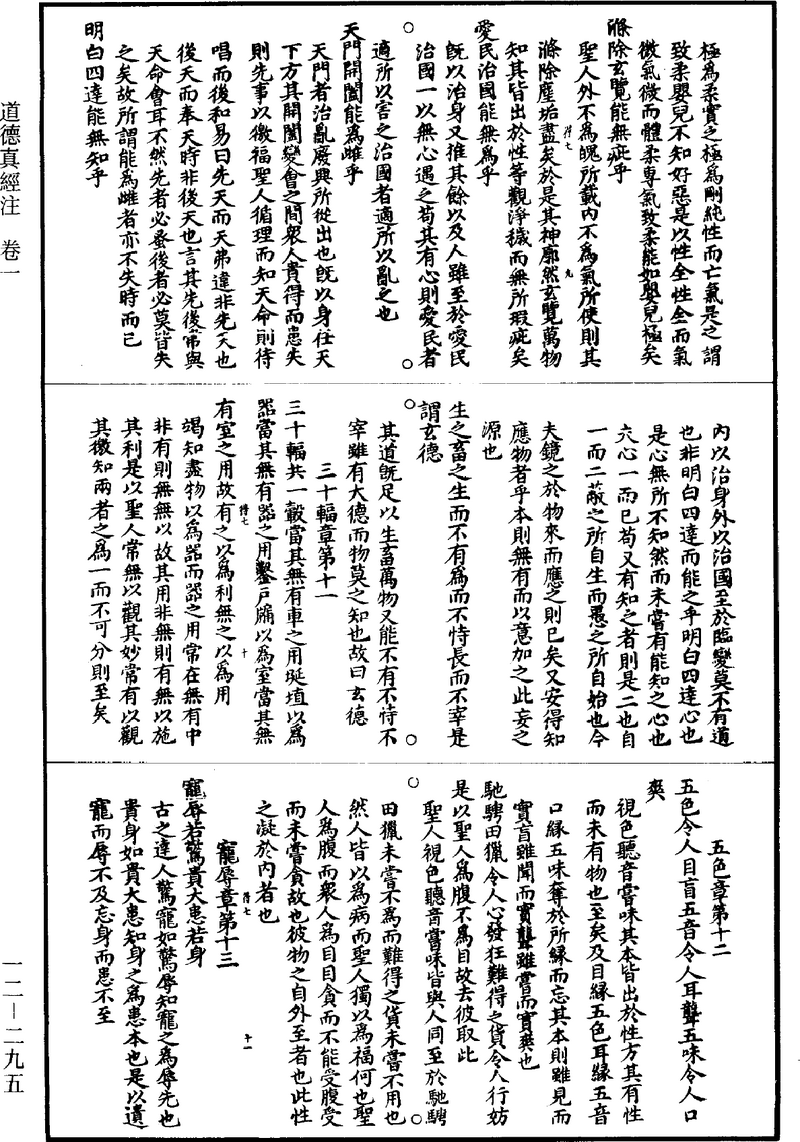 道德真經注　卷一
極為柔實之極為剛純性而亡氣是之謂
致柔嬰兒不知好惡是以性全性全而氣
微氣微而體柔專氣致柔能如嬰兒極矣
滌除玄覽能無疵乎
聖人外不為魄所載內不為氣所使則其
滌除塵垢盡矣於是其神廓然玄覽萬物
知其皆出於性等觀淨穢而無所瑕疵矣
愛民治國能無為乎
既以治身又推其餘以及人雖至於愛民
治國一以無心遇之苟其有心則愛民者
適所以害之治國者適所以亂之也
天門開闔能為雌乎
天門者治亂廢興所從出也既以身任天
下方其開闔變會之間眾人貴得而患失
則先事以徼福聖人循理而知天命則待
唱而後和易曰先天而天弗違非先天也
後天而奉天時非後天也言其先後常與
天命會耳不然先者必蚤後者必莫皆失
之矣故所謂能為雌者亦不失時而已
明白四達能無知乎
內以治身外以治國至於臨變莫不有道
也非明白四達而能之乎明白四達心也
是心無所不知然而未嘗有能知之心也
夫心一而已苟又有知之者則是二也自
一而二蔽之所自生而愚之所自始也今
夫鏡之於物來而應之則已矣又安得知
應物者乎本則無有而以意加之此妄之
源也
生之畜之生而不有為而不恃長而不宰是
謂玄德
其道既足以生畜萬物又能不有不恃不
宰雖有大德而物莫之知也故曰玄德
三十輻章第十一
三十輻共一轂當其無有車之用埏埴以為
器當其無有器之用鑿戶牖以為室當其無
有室之用故有之以為利無之以為用
竭知盡物以為器而器之用常在無有中
非有則無無以故其用非無則有無以施
其利是以聖人常無以觀其妙常有以觀
其徼知兩者之為一而不可分則至矣
五色章第十二
五色令人目盲五音令人耳聾五味令人口
爽
視色聽音嘗味其本皆出於性方其有性
而未有物也至矣及目緣五色耳緣五音
口緣五味奪於所緣而忘其本則雖見而
實盲雖聞而實聾雖嘗而實爽也
馳騁田獵令人心發狂難得之貨令人行妨
是以聖人為腹不為目故去彼取此
聖人視色聽音嘗味皆與人同至於馳騁
田獵未嘗不為而難得之貨未嘗不用也
然人皆以為病而聖人獨以為福何也聖
人為腹而眾人為目目貪而不能受腹受
而未嘗貪故也彼物之自外至者也此性
之凝於內者也
寵辱章第十三
寵辱若驚貴大患若身
古之達人驚寵如驚辱知寵之為辱先也
貴身如貴大患知身之為患本也是以遺
寵而辱不及忘身而患不至
一二—二九五